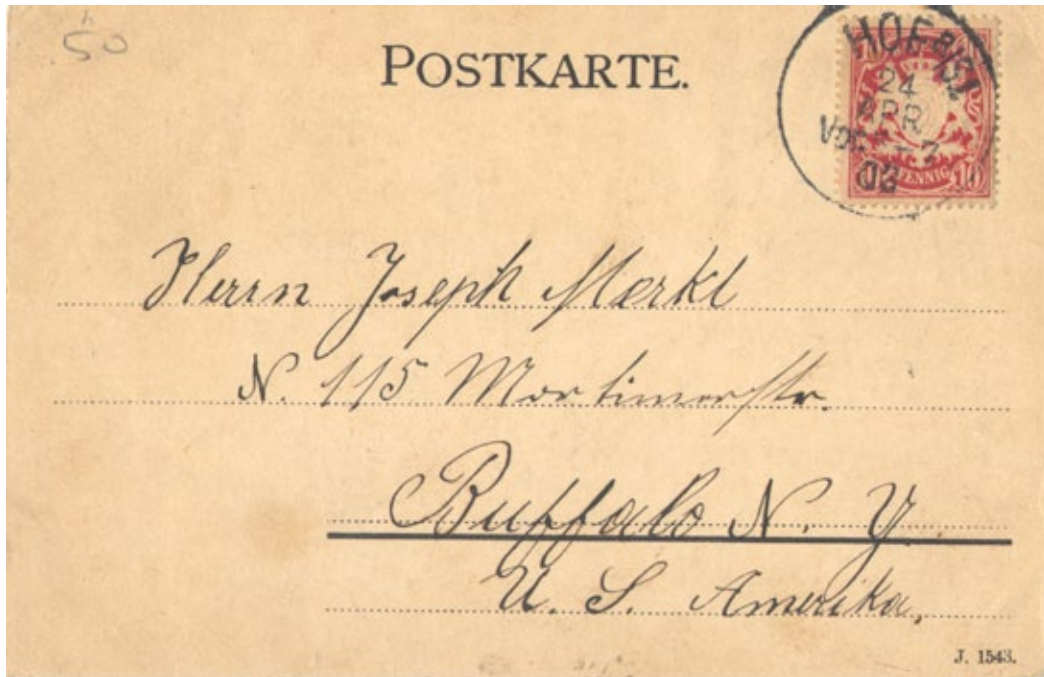 50
POSTKARTE.
HOF
24
APR
Vor. - 7
PFENNIG 10
Herrn Joseph Markl
N. 115 Mortimerstr.
Buffalo N. Y.
U. S. Amerika,
J. 1543.